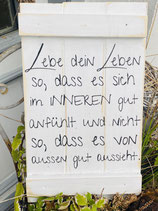 Lebe dein Leben
so, dass es sich
im INNEREN gut
anfühlt und nicht
so, dass es von
aussen gut aussieht.